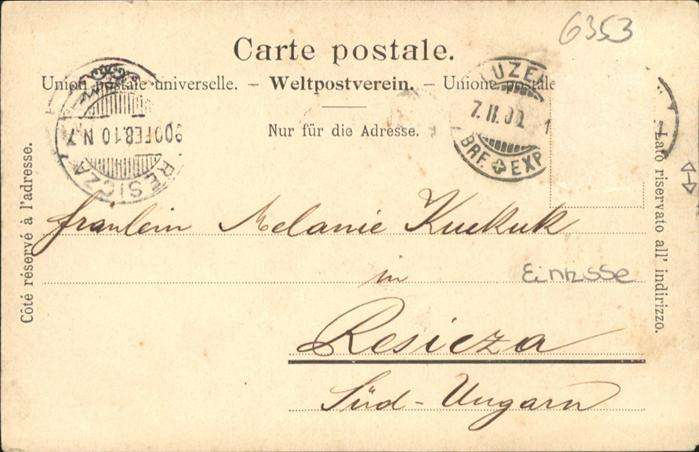 6353
Carte postale.
Union postale universelle. – Weltpostverein. – Unione postale
Nur für die Adresse.
LUZERN
7.II.00
BRF. EXP
RESICZA
900 FEB. 10 N. 7
Côté réservé à l'adresse.
Lato riservato all' indirizzo.
Fraulein Melanie Kuckuk
in
Resicza
Süd-Ungarn